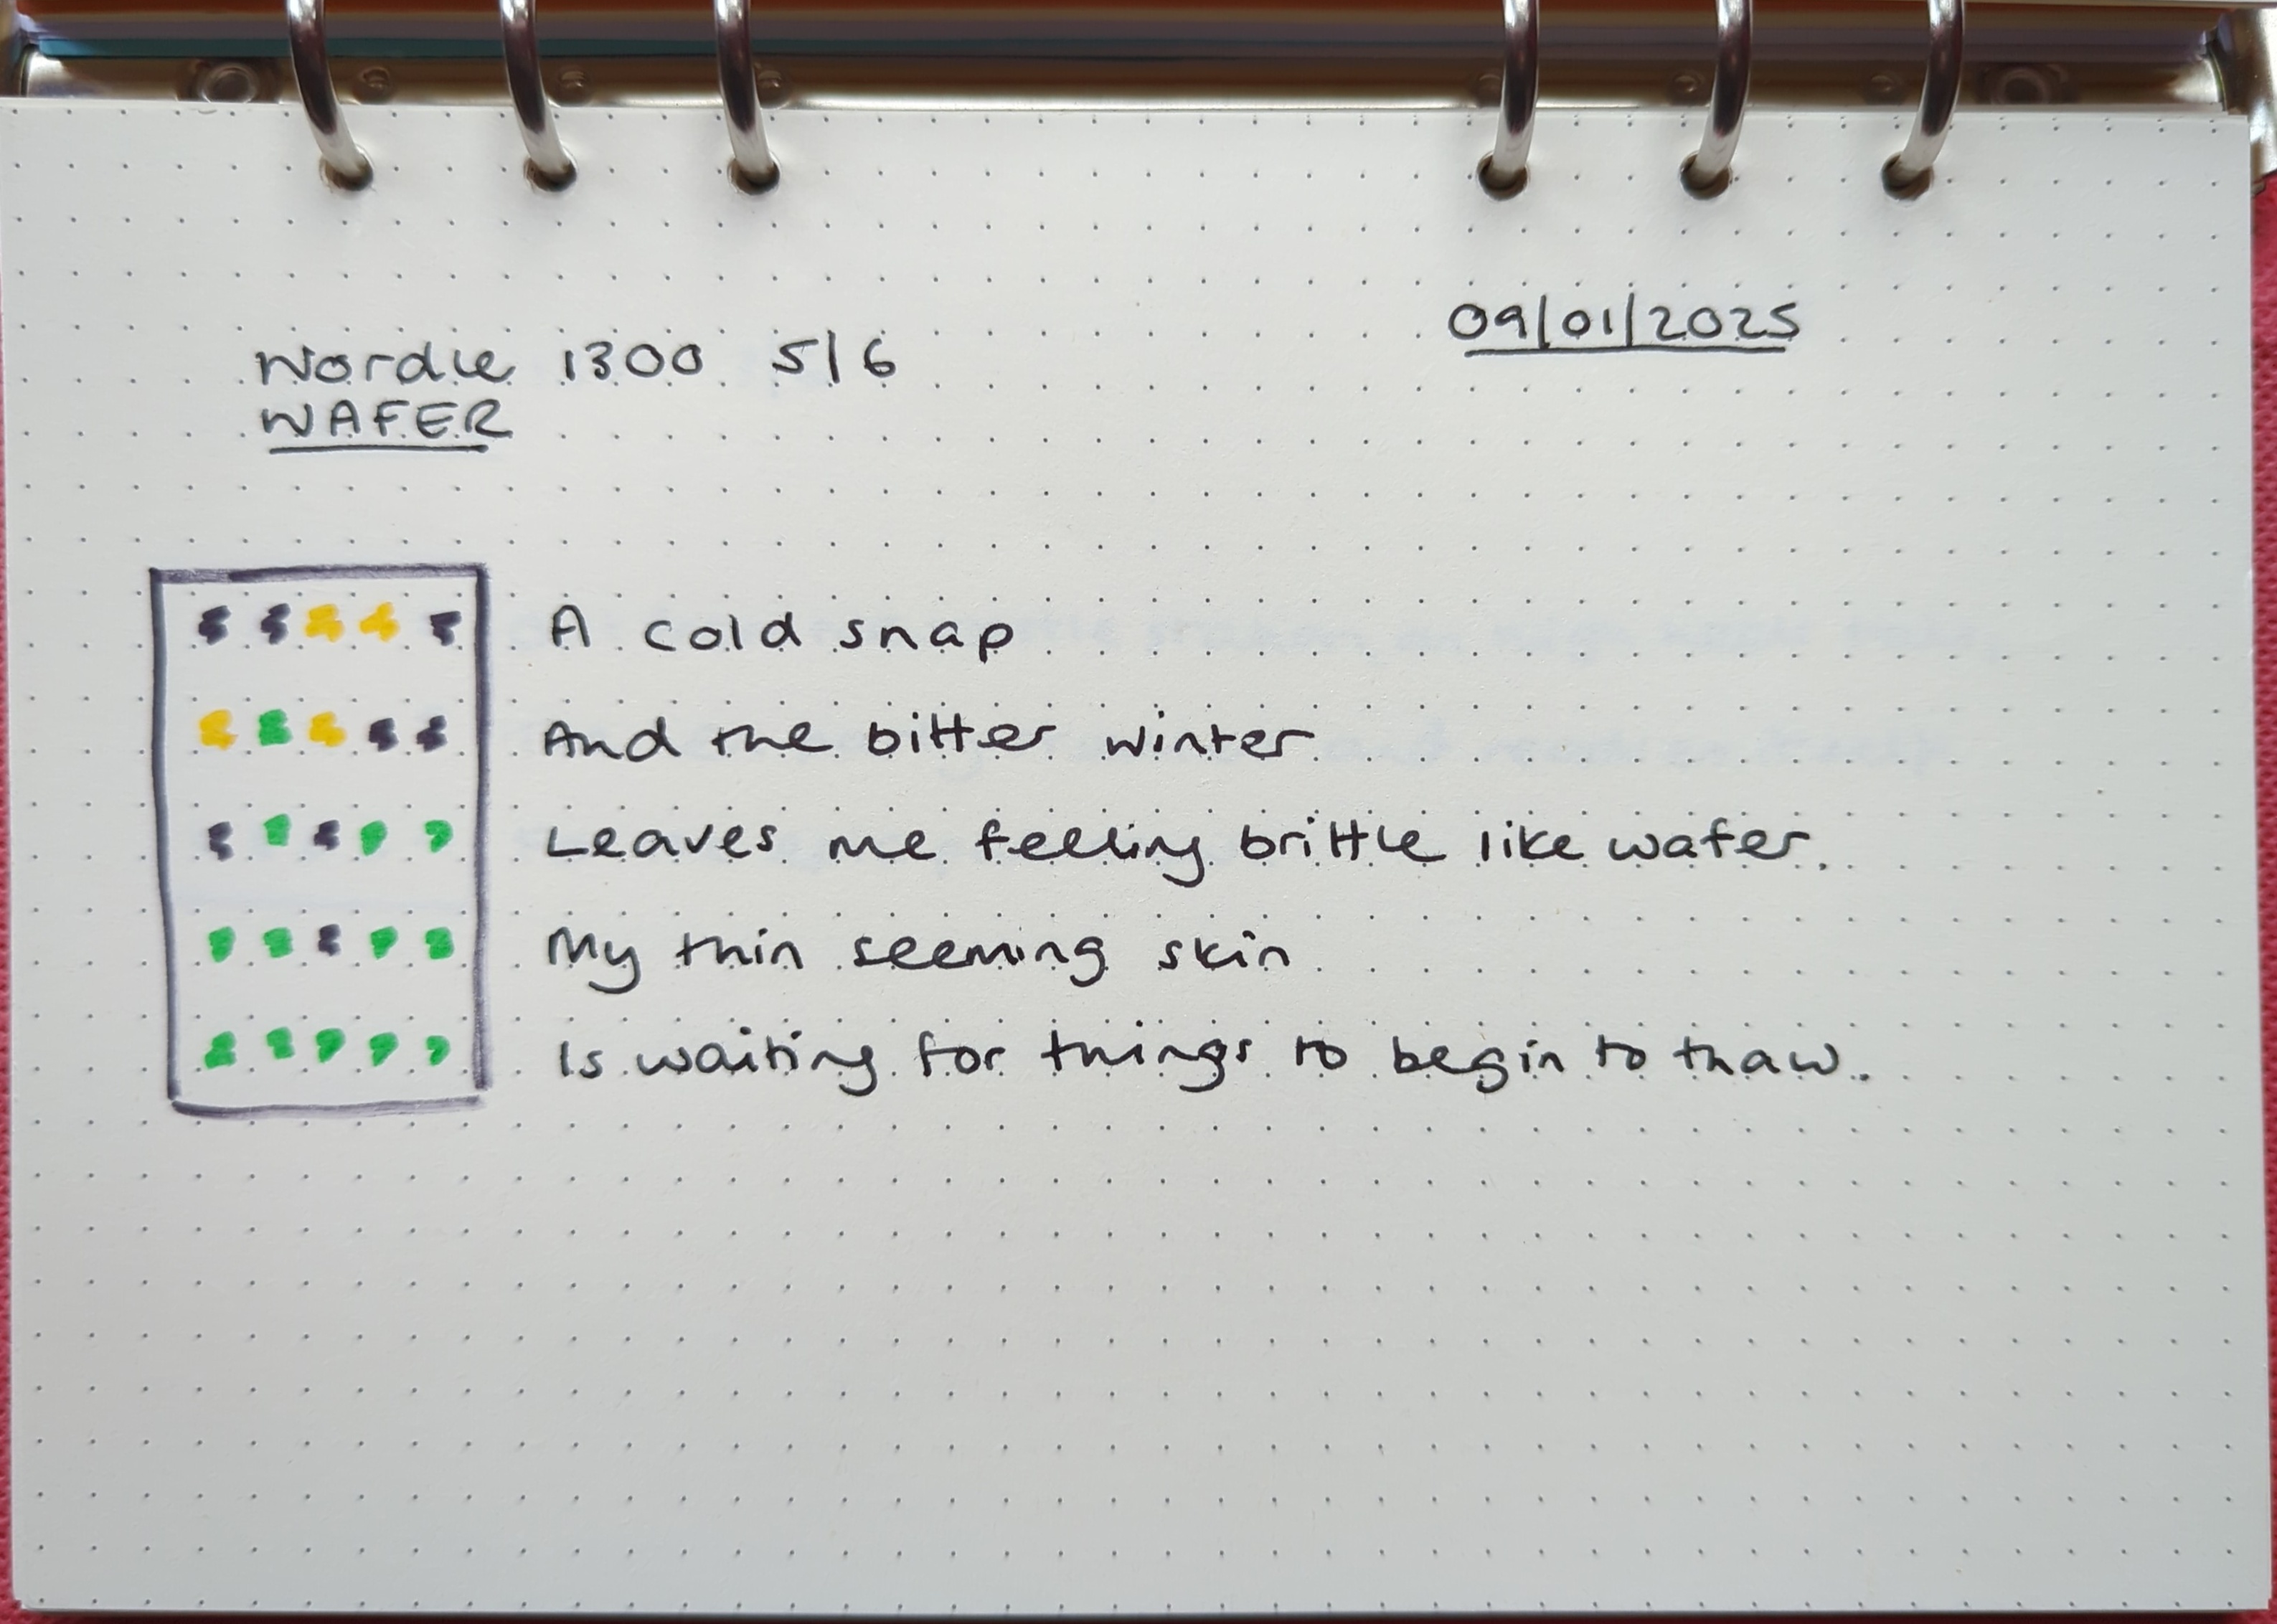 09/01/2025
Wordle 1300 5/6
WAFER
A cold snap
And the bitter winter
Leaves me feeling brittle like wafer.
My thin seeming skin
Is waiting for things to begin to thaw.